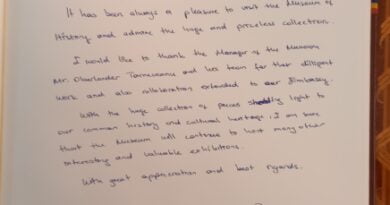 It has been always a pleasure to visit the Museum of
History and admire the huge and priceless collection.
I would like to thank the Manager of the Museum
Mr. Oberlander and his team for their diligent
work and also collaboration extended to our Embassy.
With the huge collection of pieces shedding light to
our common history and cultural heritage, I am sure
that the Museum will continue to host many other
interesting and valuable exhibitions.
With great appreciation and best regards.